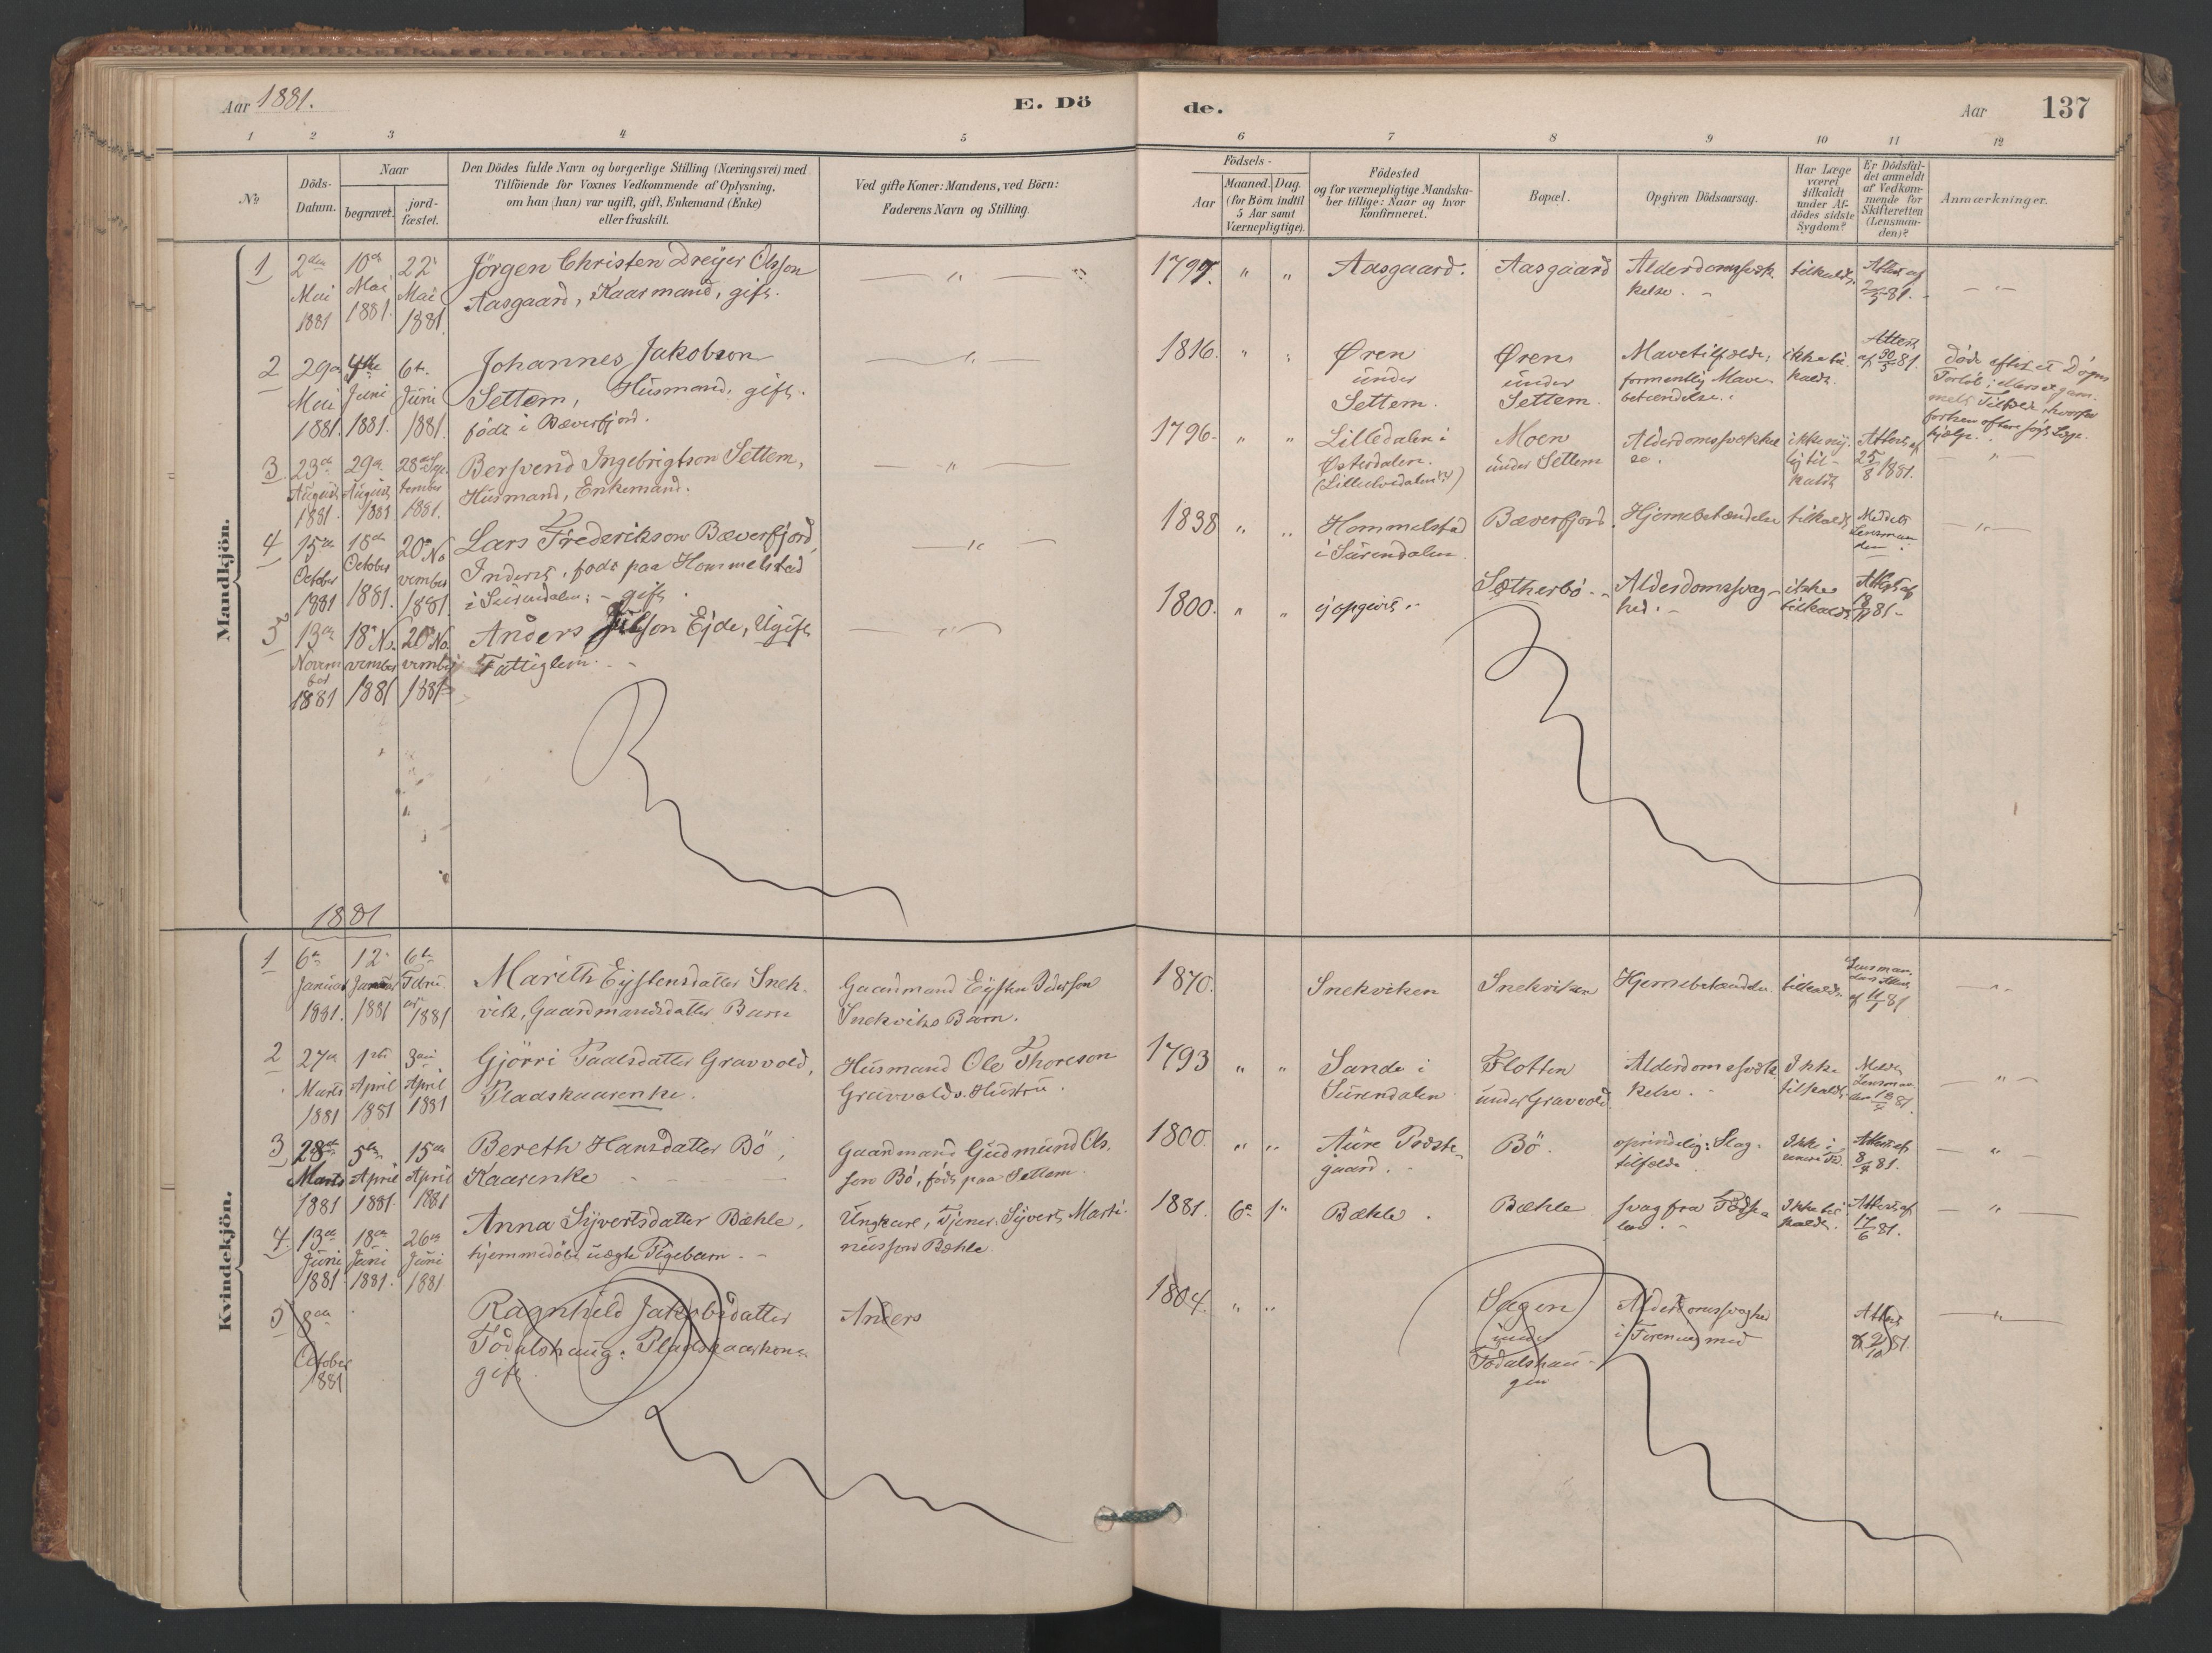 Aar 1881.
E. Dö
de.
Aar 137
1 2 3 4 5 6 7 8 9 10 11 12
No
Döds-
Datum.
Naar
begravet.
jord-
fæstet.
Den Dödes fulde Navn og borgerlige Stilling (Næringsvei) med
Tilföiende for Voxnes Vedkommende af Oplysning,
om han (hun) var ugift, gift, Enkemand (Enke)
eller fraskilt.
Ved gifte Koner: Mandens, ved Börn:
Faderens Navn og Stilling.
Födsels-
Aar
Maaned. Dag.
(for Börn indtil
5 Aar samt
Værnepligtige).
Födested
og for værnepligtige Mandska-
ber tillige: Naar og hvor
konfirmeret.
Bopæl.
Opgiven Dödsaarsag.
Har Læge
været
tilkaldt
under Af-
dödes sidste
Sygdom?
Er Dödsfal-
det anmeldt
af Vedkom-
mende for
Skifteretten
(Lensman-
den)?
Anmærkninger.
Mandkjön.
1
2den
Mai
1881
10de
Mai
1881.
22de
Mai
1881.
Jörgen Christen Dreyer Olsson
Aasgaard, Kaarmand, gift.
1797.
Aasgaard.
Aasgaard
Alderdomssvæk-
kelse.
tilkaldt.
Attest af
2/5 81.
2
29de
Mai
1881.
4de
Juni
1881.
6te
Juni
1881.
Johannes Jakobson
Settem, Husmand, gift.
födt i Bæverfjord.
1816.
Øren
under
Settem.
Øren
under
Settem.
Mavetilfælde,
formentlig Mave-
betændelse.
ikke til-
kaldt.
Attest
af 30/5 81.
Döde efter et Dögns
Forlöb;
3.
23de
August
1881.
29de
August
1881
28de Sep-
tember
1881.
Bersvend Ingebrigtson Settem,
Husmand, Enkemand.
1796.
Lilledalen i
Østerdalen.
Moen
under Settem
Alderdomssvækkel-
se.
ikke
tilkaldt
Attest af
25/8 1881.
4
15de
October
1881
18de
October
1881.
20de No-
vember
1881.
Lars Frederikson Bæverfjord,
Inderst, födt paa Hommelstad
i Surendalen; - gift.
1838
Hommelstad
i Surendalen.
Bæverfjord.
Hjernebetændelse
tilkaldt
Meldt
Lensman-
den.
5
13de
Novem
ber
1881
18de No-
vember
1881
20de No-
vember
1881
Anders Julson Ejde, Ugift
Fattiglem.
1800.
ej opgivet.
Sætherbö.
Alderdomssvag-
hed.
ikke
tilkaldt
Attest af
18/11 81.
1881
Kvindekjön.
1
6te
Januar
1881.
12
Januar
1881
6te
Febru
ar
1881
Marith Eystensdatter Snek-
vik, Gaardmandsdatter, Barn
Gaardmand Eysten Pederson
Snekviks Barn.
1870.
Snekviken
Snekviken
Hjernebetændelse.
tilkaldt.
Lensman-
dens Attest
af 11/1 81
2
27de
Marts
1881
1ste
April
1881
3die
April
1881
Gjörri Paalsdatter Gravvold,
Pladskaarenke.
Husmand Ole Thoreson
Gravvolds Hustru.
1793
Sande i
Surendalen
Flotten
under Gravvold.
Alderdomssvæk-
kelse.
Ikke
tilkaldt.
Meldt
Lensman-
den 18/4 81.
3
28de
Marts
1881
5te
April
1881.
15de
April
1881
Bereth Hansdatter Bö,
Kaarenke
Gaardmand Gudmund Ols-
son Bö, födt paa Settem.
1800
Aure Præste-
gaard.
Bö.
oprindelig: Slag-
tilfælde.
Ikke i
senere Tid.
Attest af
8/4 81.
4
13de
Juni
1881
18de
Juni
1881.
26de
Juni
1881
Anna Syvertsdatter Bæhle,
hjemmedöbt uægte Pigebarn.
Ungkarl, Tjener, Syvert Marti-
nusson Bæhle
1881.
6te 1
Bæhle.
Bæhle
svag fra Födse-
len.
Ikke til-
kaldt.
Attest af
17/6 81.
5
8de
October
1881
Ragnhild Jakobsdatter
Todalshaug. Pladskaarkone
gift.
Anders
1804.
Sagen
under
Todalshau-
gen
Alderdomssvaghed
i Forening med
Attest